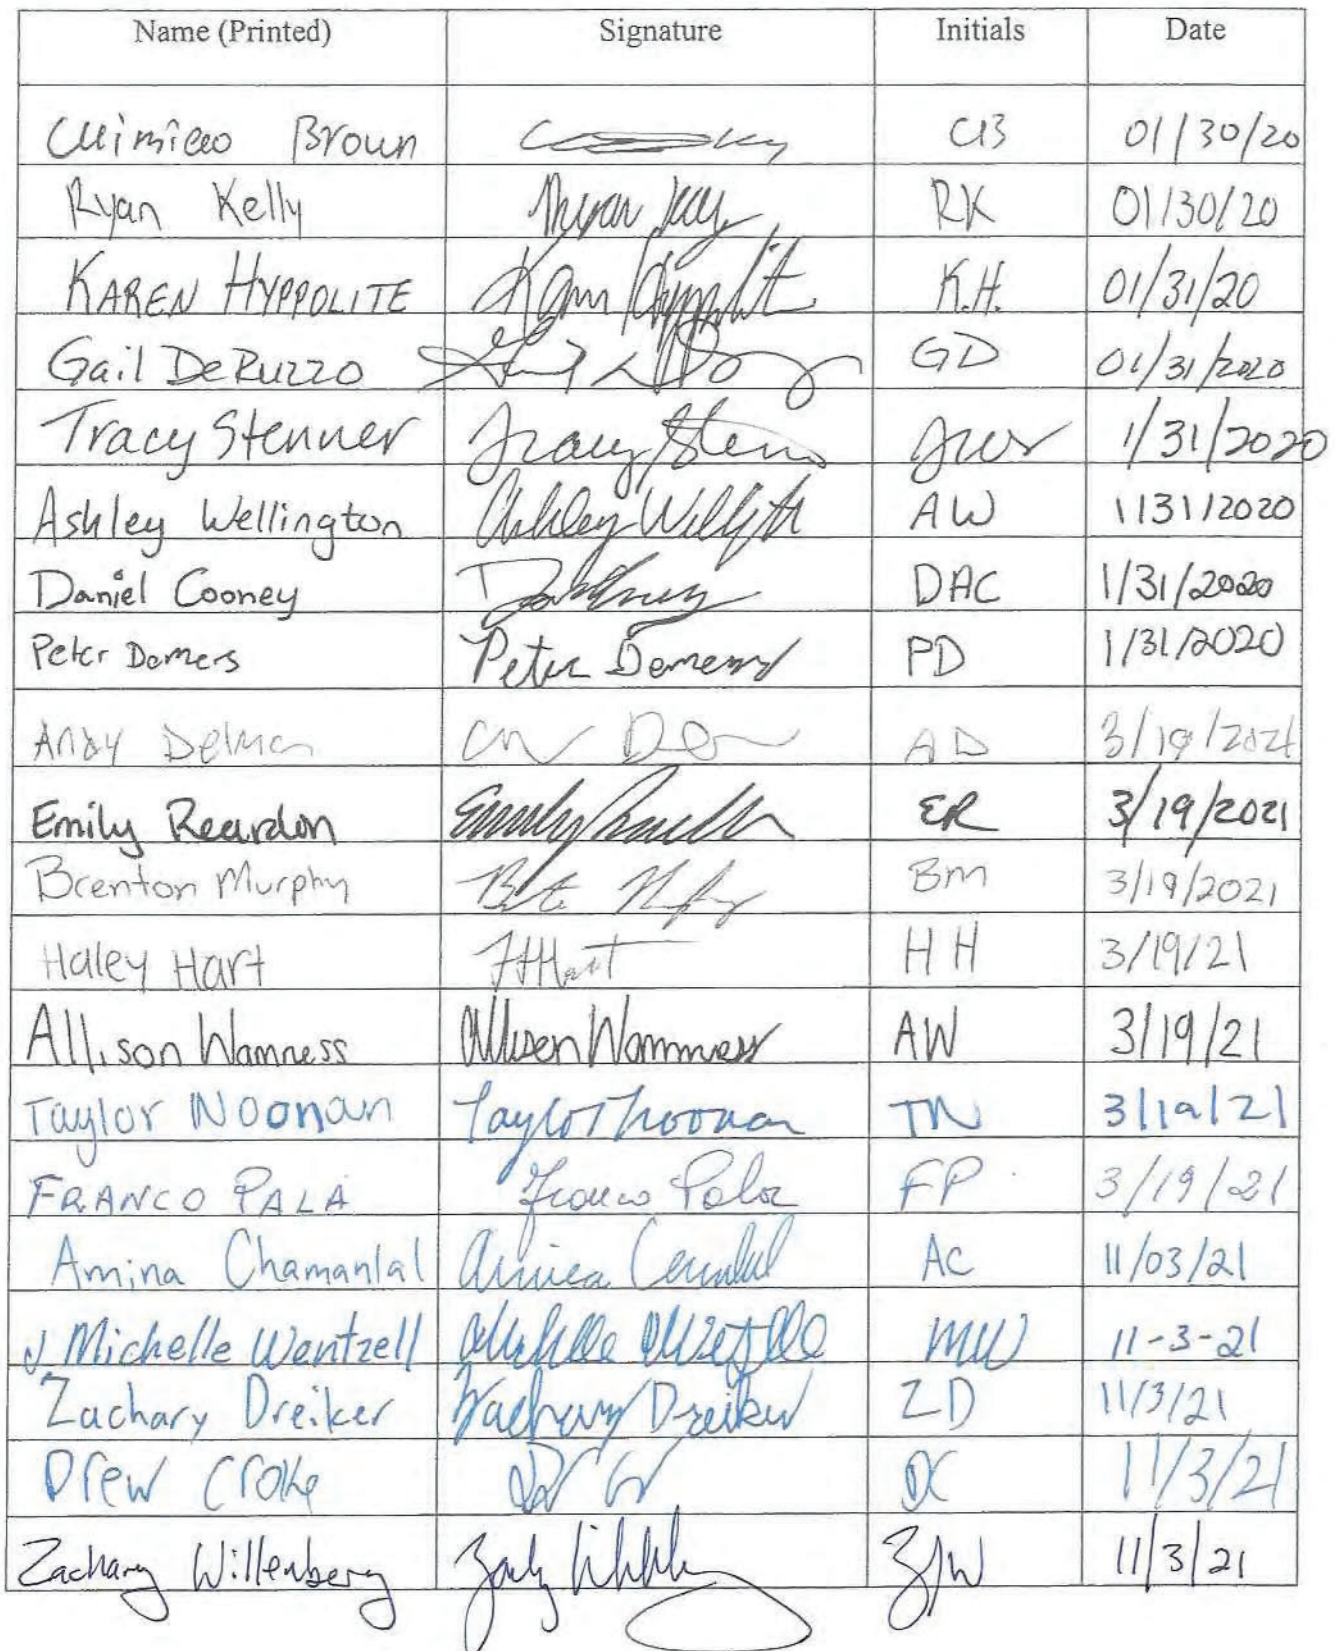 Name (Printed) Signature Initials Date
Brown CB 01/30/20
Ryan Kelly Ryan Kelly RK 01/30/20
KAREN HYPPOLITE Karen Hyppolite K.H. 01/31/20
Gail DeRuzzo GD 01/31/2020
Tracy Stenner Tracy Stenner 1/31/2020
Ashley Wellington Ashley Wellington AW 1/31/2020
Daniel Cooney DAC 1/31/2020
Peter Demers Peter Demers PD 1/31/2020
Andy AD 3/19/2021
Emily Reardon Emily Reardon ER 3/19/2021
Brenton Murphy BM 3/19/2021
Haley Hart HHart HH 3/19/21
Allison Wamness Allison Wamness AW 3/19/21
Taylor Noonan Taylor Noonan TN 3/19/21
FRANCO PALA Franco Pala FP 3/19/21
Amina Chamanlal Amina AC 11/03/21
J Michelle Wentzell Michelle Wentzell MW 11-3-21
Zachary Dreiker Zachary Dreiker ZD 11/3/21
Drew Croke DC 11/3/21
Zachary Willenberg ZJW 11/3/21